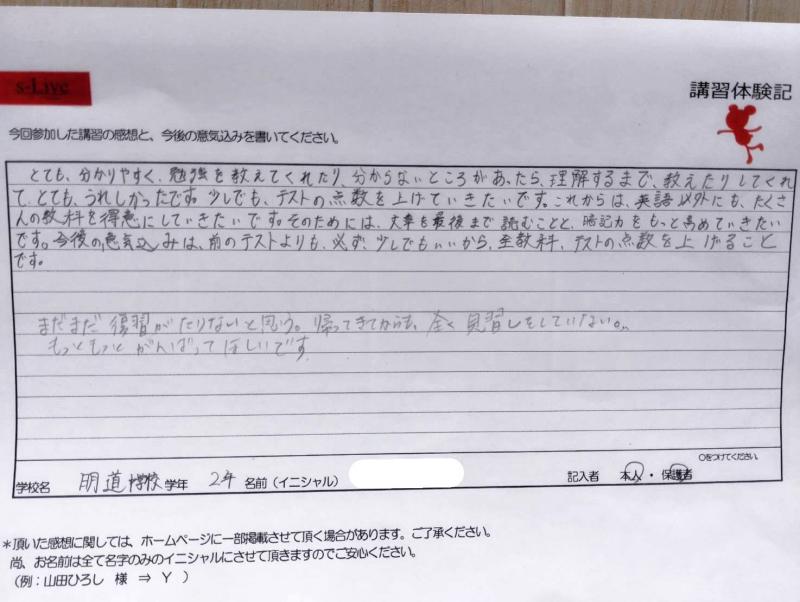 s-Live
講習体験記
今回参加した講習の感想と、今後の意気込みを書いてください。
とても、分かりやすく、勉強を教えてくれたり、分からないところがあったら、理解するまで、教えたりしてくれ
て、とても、うれしかったです。少しでも、テストの点数を上げていきたいです。これからは、英語以外にも、たくさ
んの教科を得意にしていきたいです。そのためには、文章を最後まで読むことと、暗記力をもっと高めていきたい
です。今後の意気込みは、前のテストよりも、必ず、少しでもいいから、全教科、テストの点数を上げること
です。
まだまだ復習がたりないと思う。帰ってきてからも、全く見習しをしていない。
もっともっとがんばってほしいです
〇をつけてください。
学校名 明道中学校 学年 2年 名前（イニシャル） 記入者 本人・保護者
＊頂いた感想に関しては、ホームページに一部掲載させて頂く場合があります。ご了承ください。
尚、お名前は全て名字のみのイニシャルにさせて頂きますのでご安心ください。
（例：山田ひろし 様 ⇒ Y ）